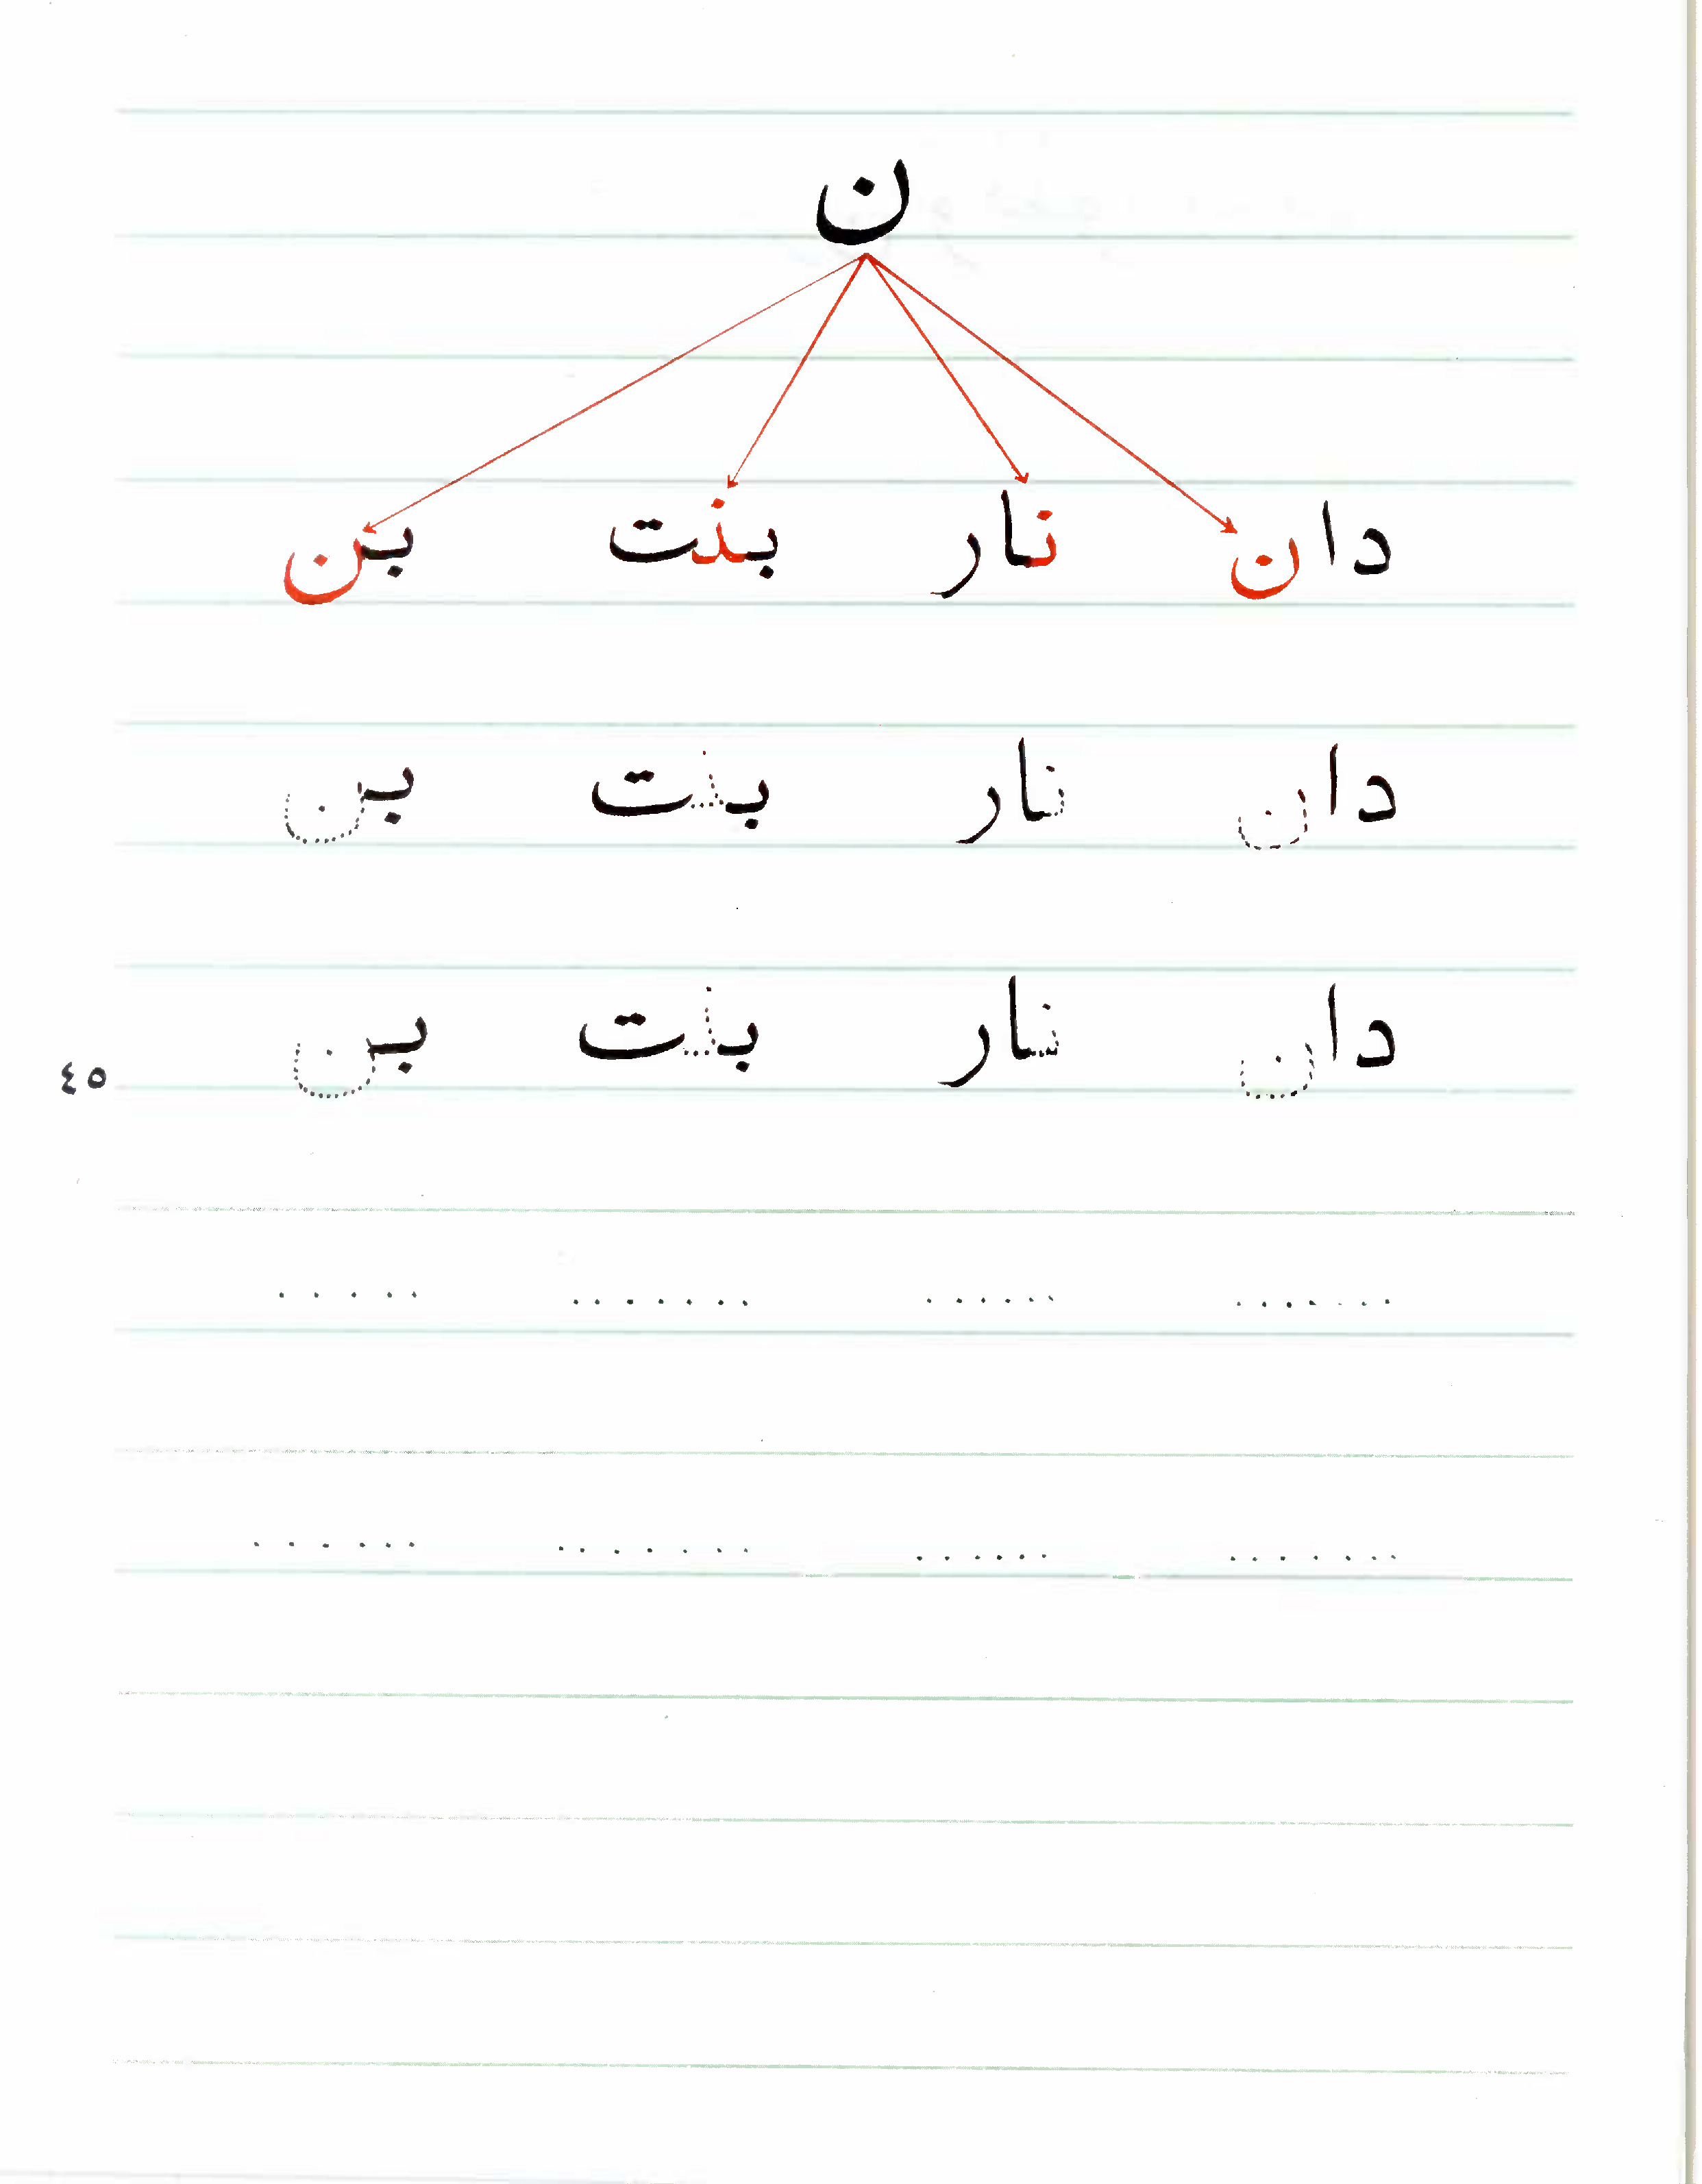 ن
دان نار بنت بن
دان نار بنت بن
دان نار بنت بن
٤٥
....... ...... ....... .....
....... ...... ....... ......